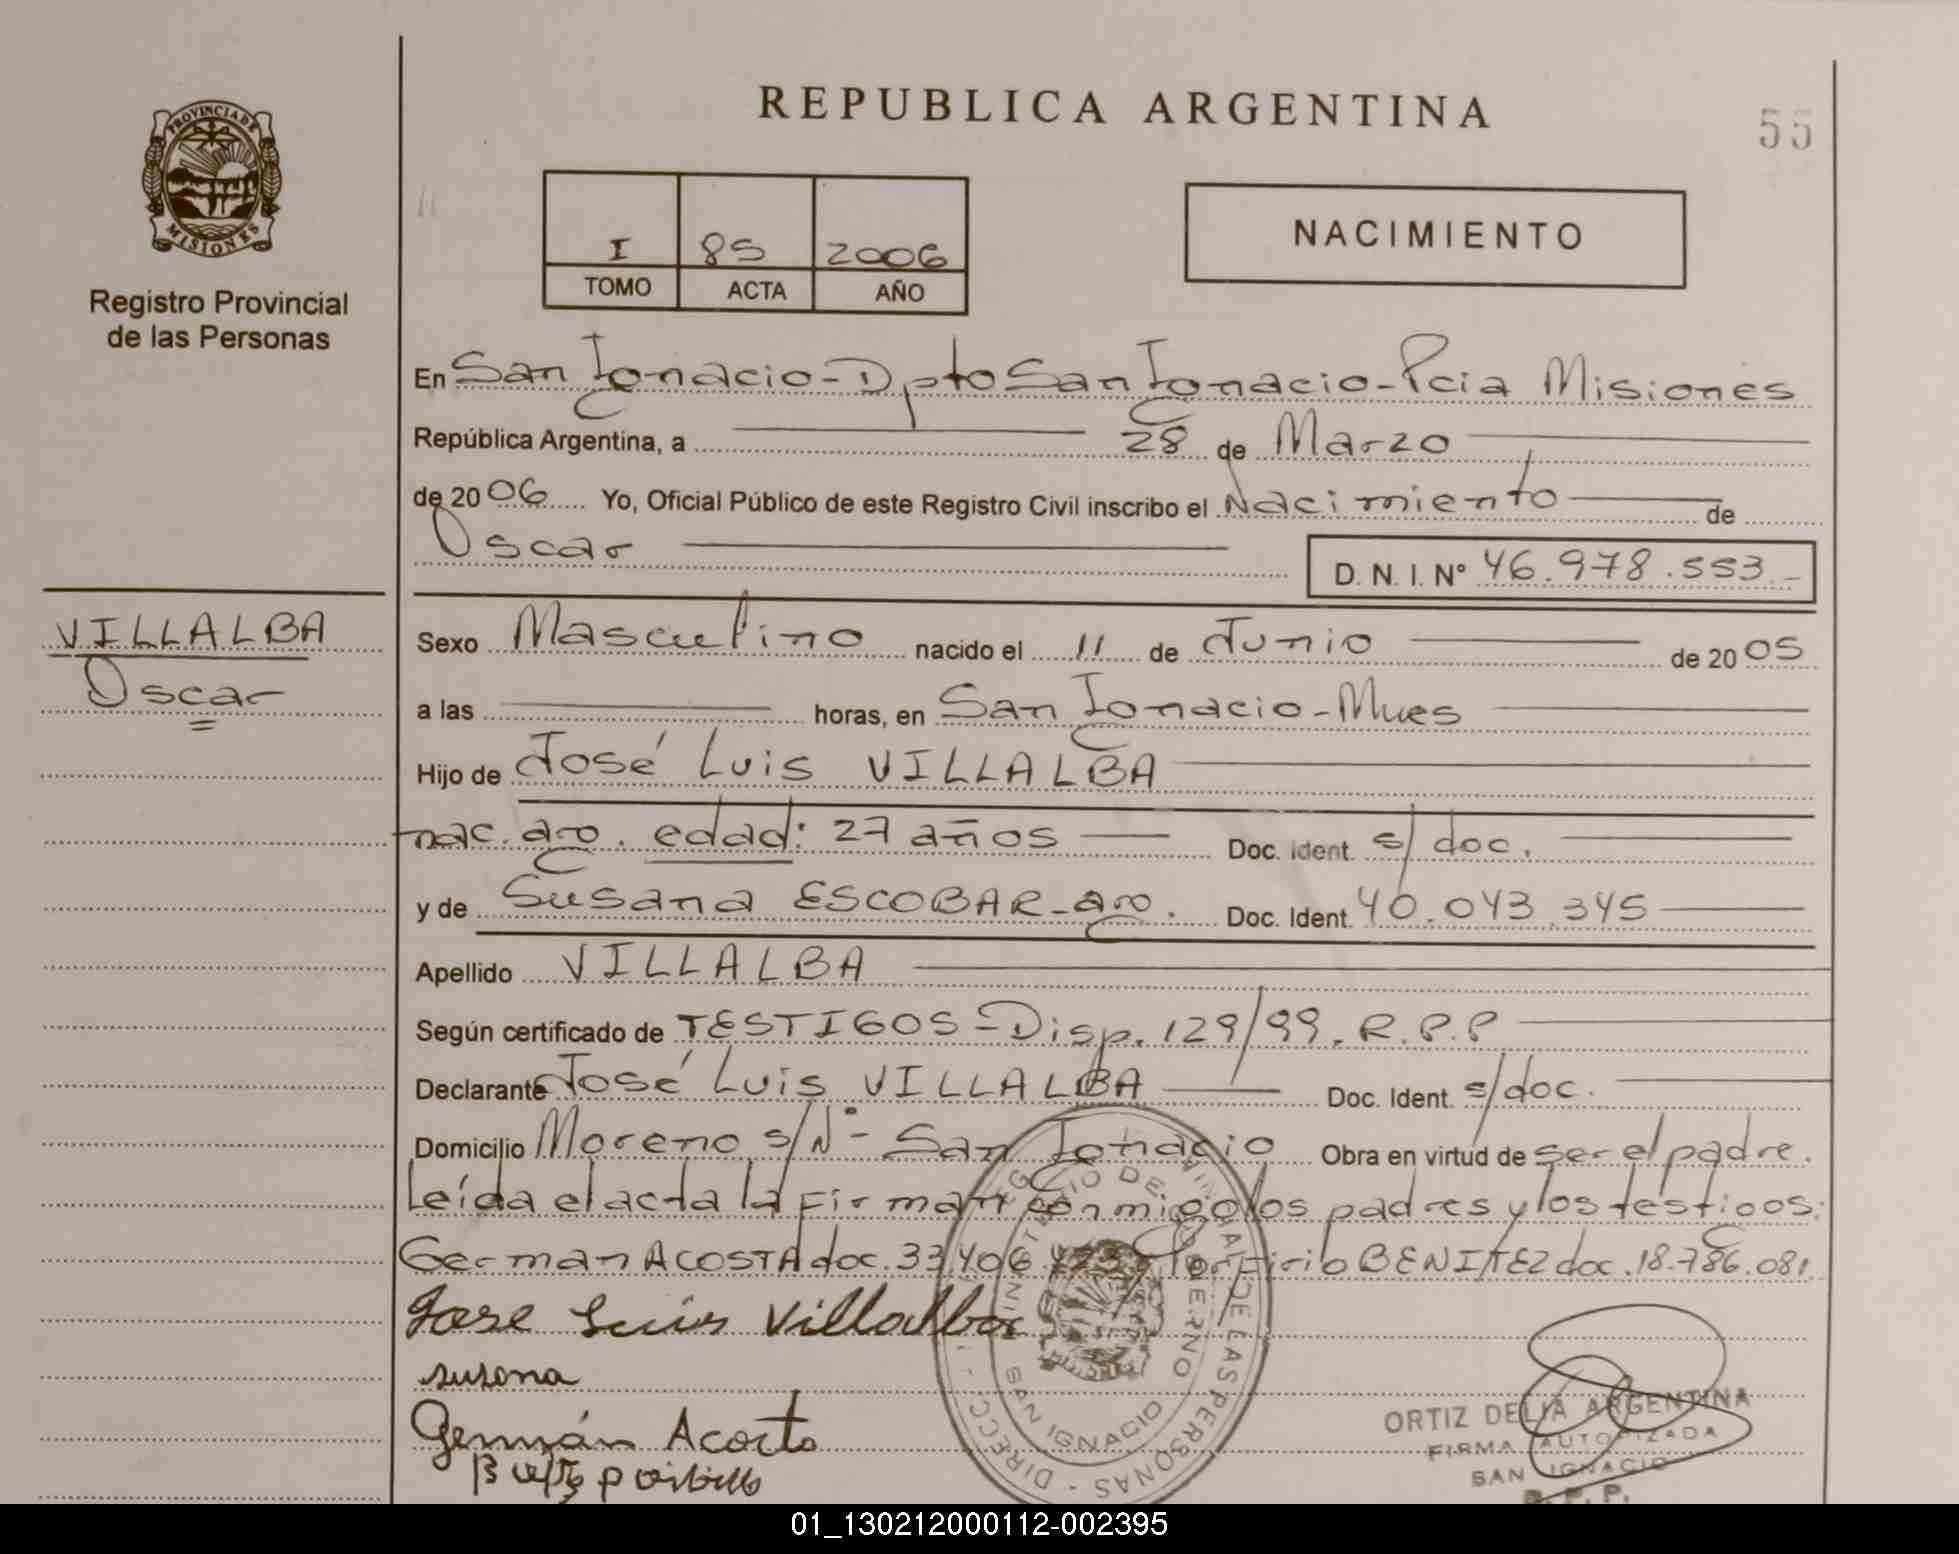 REPUBLICA ARGENTINA
55
PROVINCIA DE
MISIONES
Registro Provincial
de las Personas
I 85 2006
TOMO ACTA AÑO
NACIMIENTO
En San Ignacio - Dpto San Ignacio - Pcia Misiones
República Argentina, a 28 de Marzo
de 20 06 Yo, Oficial Público de este Registro Civil inscribo el Nacimiento de
Oscar D. N. I. Nº 46.978.553.-
VILLALBA
Oscar
Sexo Masculino nacido el 11 de Junio de 20 05
a las horas, en San Ignacio - Mnes
Hijo de José Luis VILLALBA
nac. arg. edad: 27 años Doc. Ident. s/doc.
y de Susana ESCOBAR - arg. Doc. Ident. 40.043.345
Apellido VILLALBA
Según certificado de TESTIGOS - Disp. 129/99. R.P.P
Declarante José Luis VILLALBA Doc. Ident. s/doc.
Domicilio Moreno s/Nº - San Ignacio Obra en virtud de ser el padre.
Leída el acta la firman conmigo los padres y los testigos:
German ACOSTA doc. 33.406. y Porfirio BENITEZ doc. 18.786.081
Jose Luis Villalba
susana
Germán Acosta
MINISTERIO DE GOBIERNO
SAN IGNACIO
DE LAS PERSONAS
ORTIZ DELIA ARGENTINA
FIRMA AUTORIZADA
SAN IGNACIO
R. P. P.
01_130212000112-002395